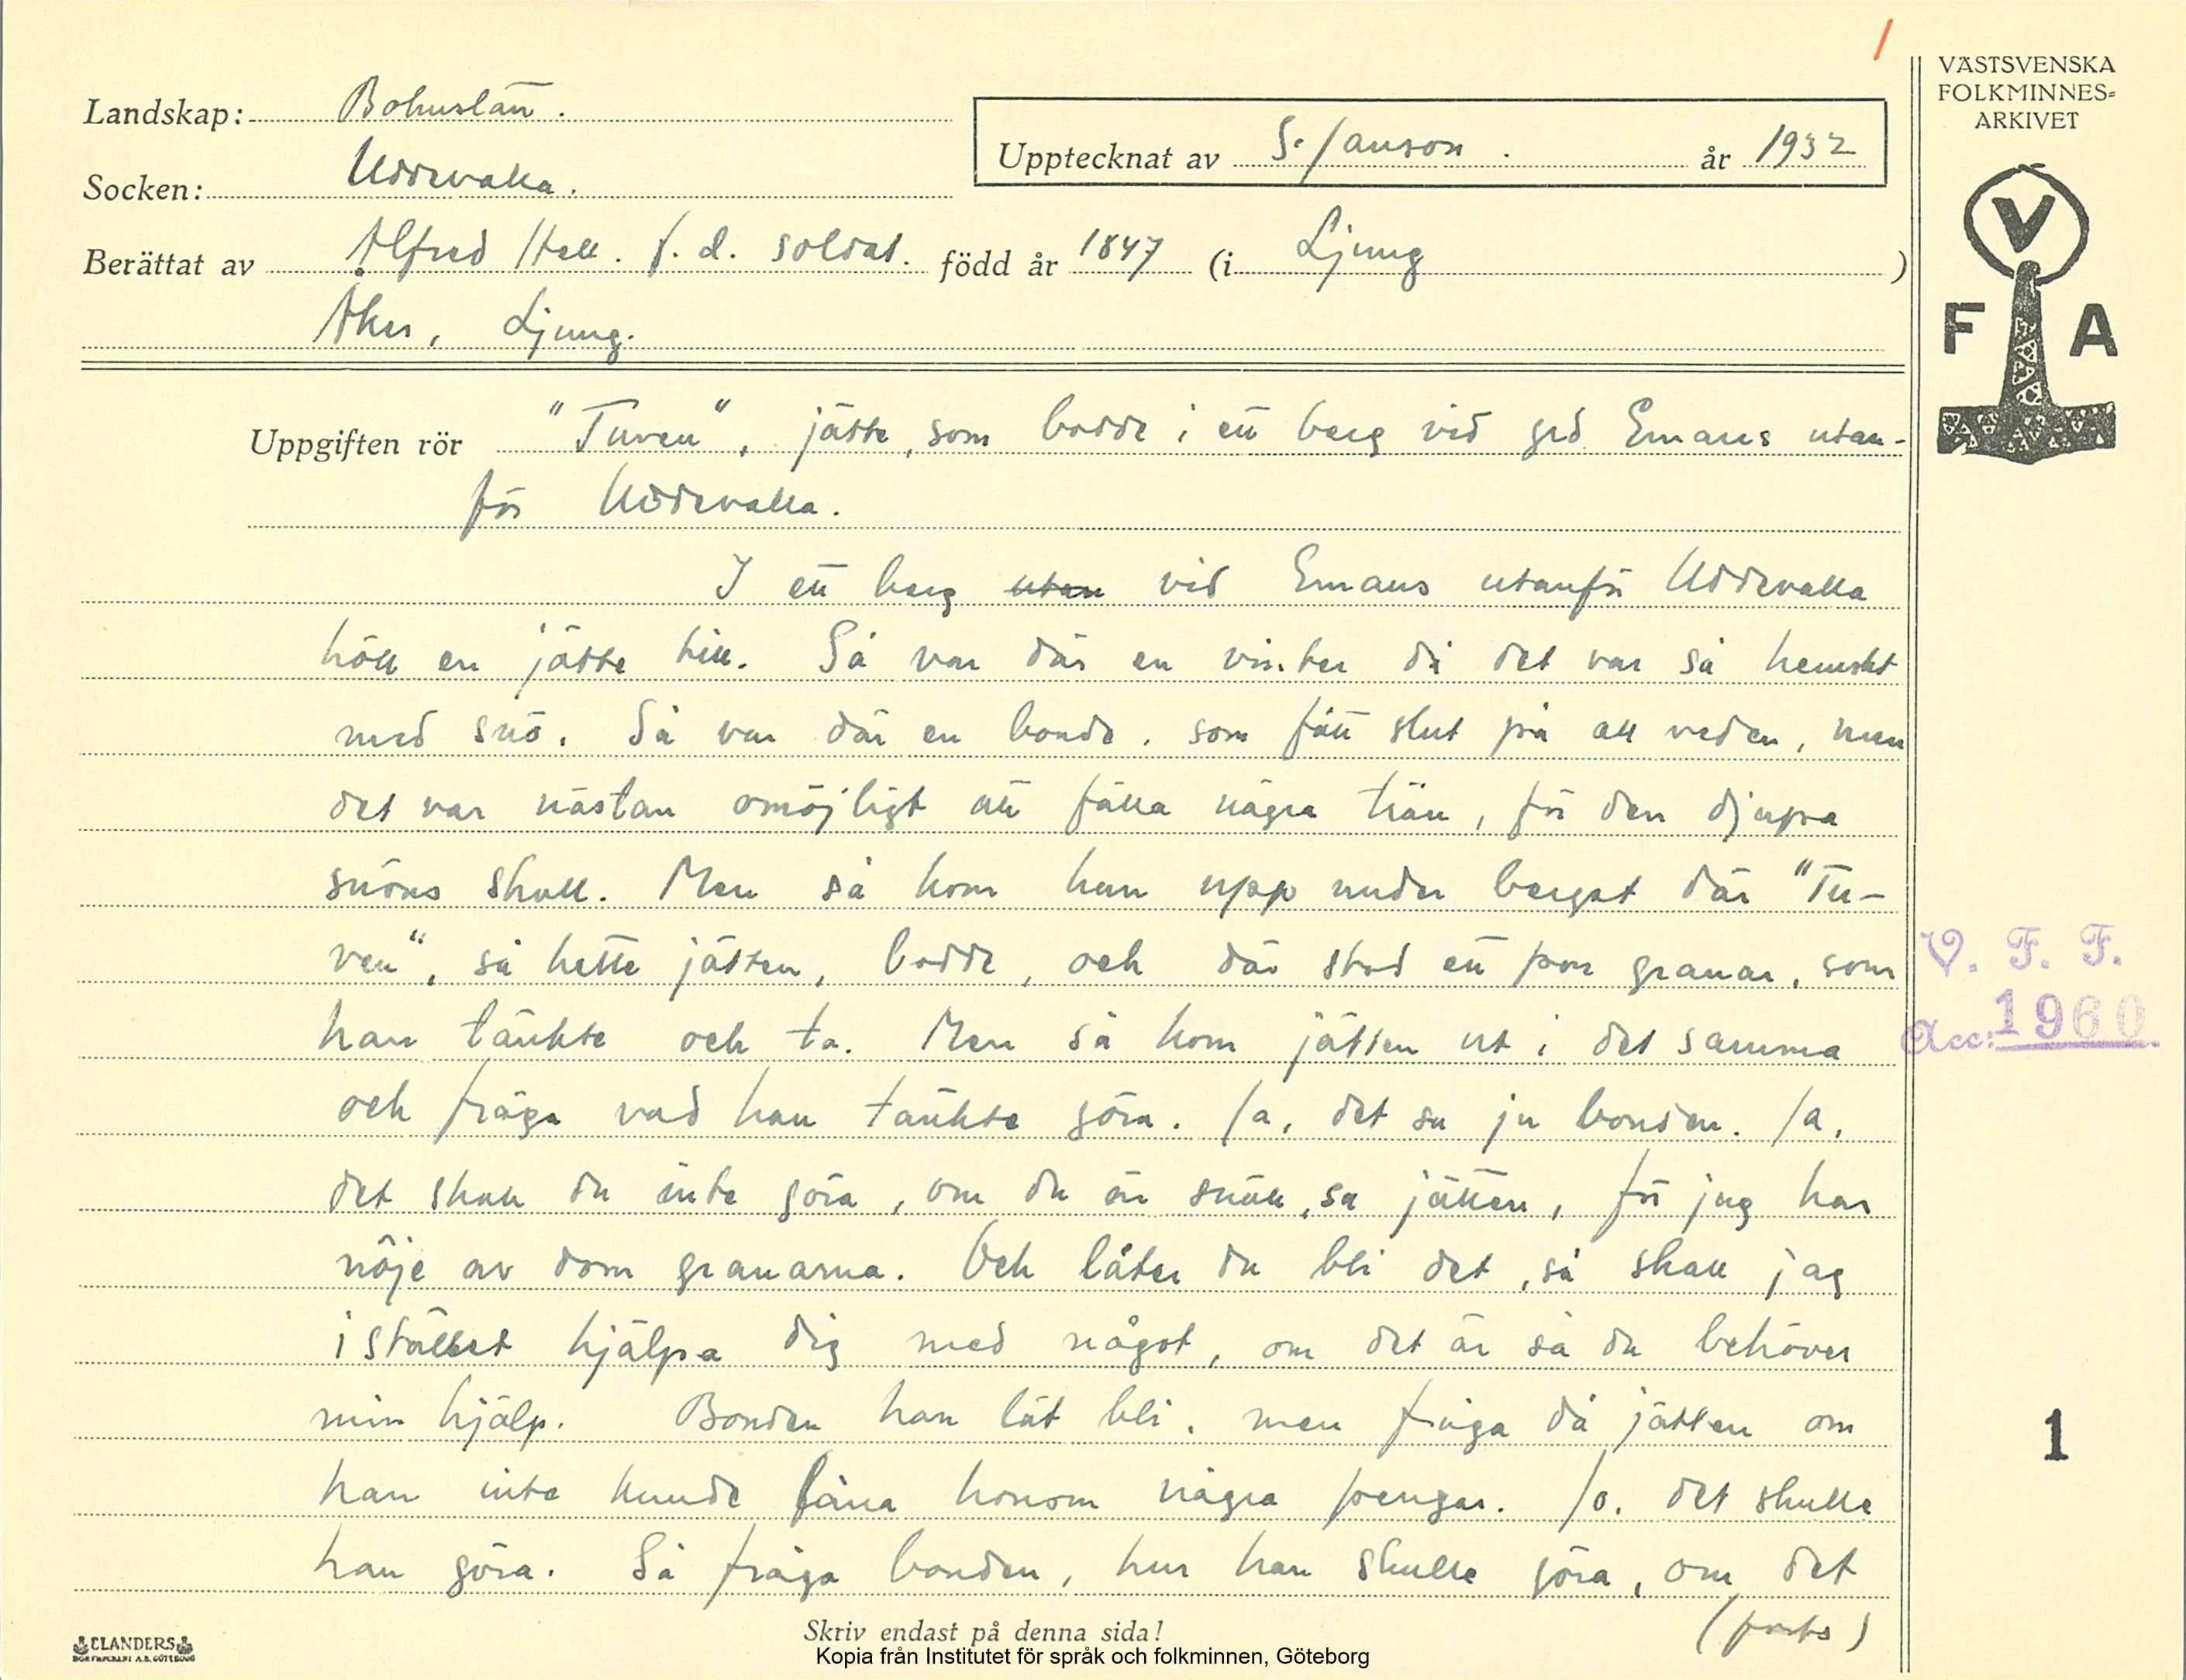 /
VÄSTSVENSKA
FOLKMINNES=
ARKIVET
Landskap: Bohuslän.
Upptecknat av S. Janson. år 1932
Socken: Uddevalla.
Berättat av Alfred Hall. f. d. soldat. född år 1847 (i Ljung)
Åker, Ljung.
V
F A
Uppgiften rör "Tuven", jätte, som bodde i ett berg vid grd Emaus utan-
för Uddevalla.
I ett berg utan vid Emaus utanför Uddevalla
höll en jätte till. Så var där en vinter då det var så hemskt
med snö. Så var där en bonde, som fått slut på all veden, men
det var nästan omöjligt att fälla några trän, för den djupa
snöns skull. Men så kom han upp under berget där "Tu-
ven", så hette jätten, bodde, och där stod ett par granar, som
han tänkte och ta. Men så kom jätten ut i det samma
och fråga vad han tänkte göra. Ja, det sa ju bonden. Ja,
det skall du inte göra, om du är snäll, sa jätten, för jag har
nöje av dom granarna. Och låter du bli det, så skall jag
i stället hjälpa dig med något, om det är så du behöver
min hjälp. Bonden han lät bli, men fråga då jätten om
han inte kunde låna honom några pengar. Jo, det skulle
han göra. Så fråga bonden, hur han skulle göra, om det
(forts)
V. F. F.
Acc: 1960.
1
Skriv endast på denna sida!
ELANDERS
BOKTRYCKERI A.B. GÖTEBORG
Kopia från Institutet för språk och folkminnen, Göteborg